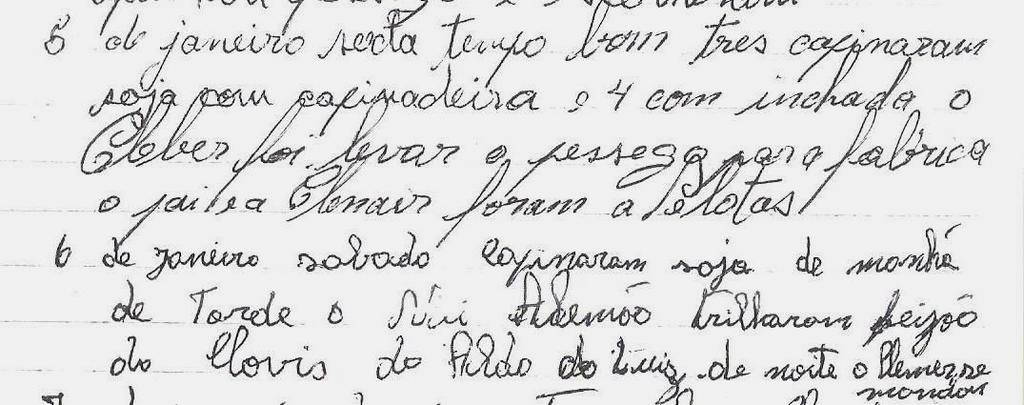 5 de janeiro sexta tempo bom tres capinaram
soja com capinadeira e 4 com inchada o
Cleber foi levar o pessego para fabrica
o pai ea Clenair foram a Pelotas
6 de janeiro sabado Capinaram soja de manhã
de Tarde o Alemão trilharam feijão
do Clovis do Aldo do Luiz de noite o Clemer se
mandou